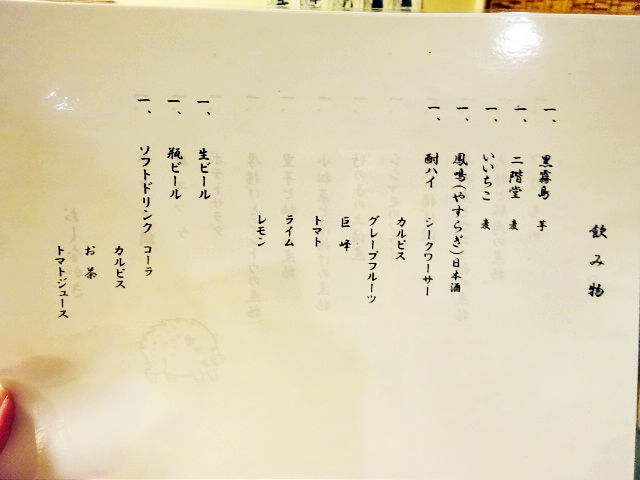 飲み物
一、黒霧島 芋
二、二階堂 麦
一、いいちこ 麦
一、鳳鳴(やすらぎ)日本酒
一、酎ハイ シークワーサー
カルピス
グレープフルーツ
巨峰
トマト
ライム
レモン
一、生ビール
一、瓶ビール
一、ソフトドリンク コーラ
カルピス
お茶
トマトジュース